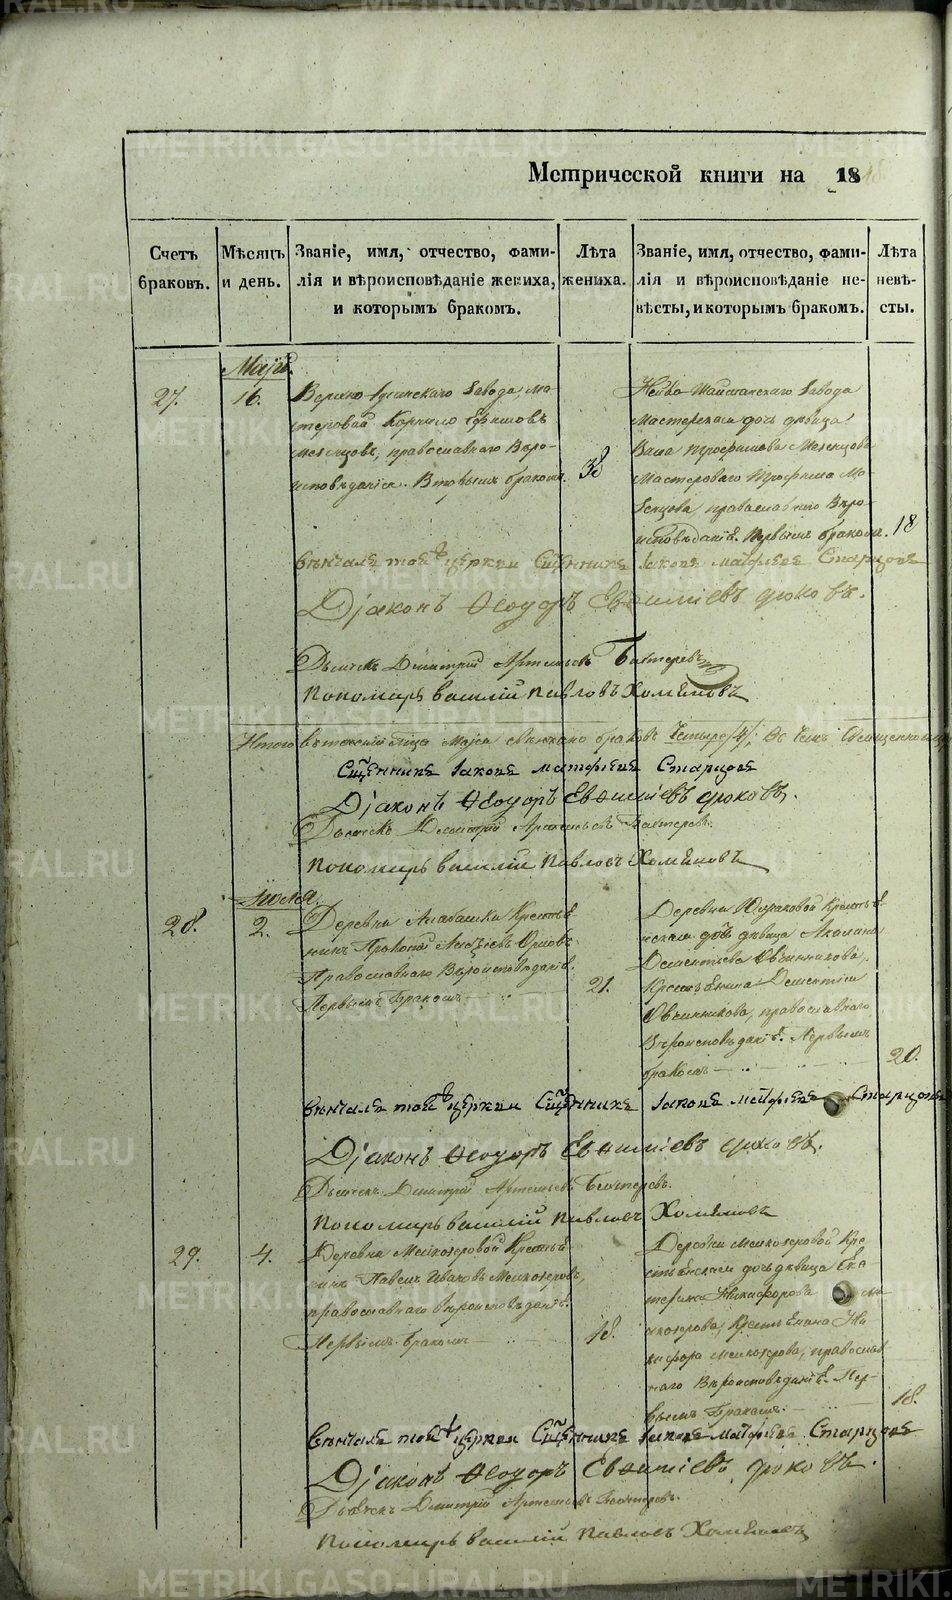 Метрической книги на 18
Счетъ браковъ.
Мѣсяцъ и день.
Званіе, имя, отчество, фами-
лія и вѣроисповѣданіе жениха,
и которымъ бракомъ.
Лѣта
жениха.
Званіе, имя, отчество, фами-
лія и вѣроисповѣданіе не-
вѣсты, и которымъ бракомъ.
Лѣта
невѣ-
сты.
27.
16.
завода, ма-
стеровой Корнило Ефимовъ
православнаго Вѣро-
исповѣданія. Вторымъ бракомъ.
38
завода
дочь дѣвица
Мастероваго
православнаго Вѣро-
исповѣданія. Первымъ бракомъ.
18
Вѣнчалъ той церкви Священникъ Іаковъ Матфѣевъ Старцовъ
Діаконъ Ѳеодоръ Евѳиміевъ
Дьячекъ Димитрій Артемьевъ Бахтеревъ
Пономарь Василій Павловъ Хомяковъ
Итого въ маіа браковъ четыре /4/,
Священникъ Іаковъ Матфѣевъ Старцовъ
Діаконъ Ѳеодоръ Евѳиміевъ
Дьячекъ Димитрій Артемьевъ Бахтеревъ.
Пономарь Василій Павловъ Хомяковъ
28.
2.
Деревни Алабашки Крестья-
нинъ
Православнаго Вѣроисповѣданія.
Первымъ Бракомъ
21.
Деревни Кресть-
янская дочь дѣвица Акилина
Дементьева Овчинникова,
Крестьянина Дементія
Овчинникова, православнаго
Вѣроисповѣданія. Первымъ
бракомъ
20.
Вѣнчалъ той церкви Священникъ Іаковъ Матфѣевъ Старцовъ
Діаконъ Ѳеодоръ Евѳиміевъ
Дьячекъ Димитрій Артемьевъ Бахтеревъ.
Пономарь Василій Павловъ Хомяковъ
29.
4.
Деревни Мелкозеровой Крестья-
нинъ Павелъ Ивановъ Мелкозеровъ,
православнаго вѣроисповѣданія.
Первымъ бракомъ
18.
Деревни Мелкозеровой Кре-
стьянская дочь дѣвица Ека-
терина Никифорова Ме-
лкозерова, Крестьянина Ни-
кифора Мелкозерова, православ-
наго Вѣроисповѣданія. Пер-
вымъ Бракомъ.
18.
Вѣнчалъ той церкви Священникъ Іаковъ Матфѣевъ Старцовъ
Діаконъ Ѳеодоръ Евѳиміевъ
Дьячекъ Димитрій Артемьевъ Бахтеревъ.
Пономарь Василій Павловъ Хомяковъ
METRIKI.GASO-URAL.RU